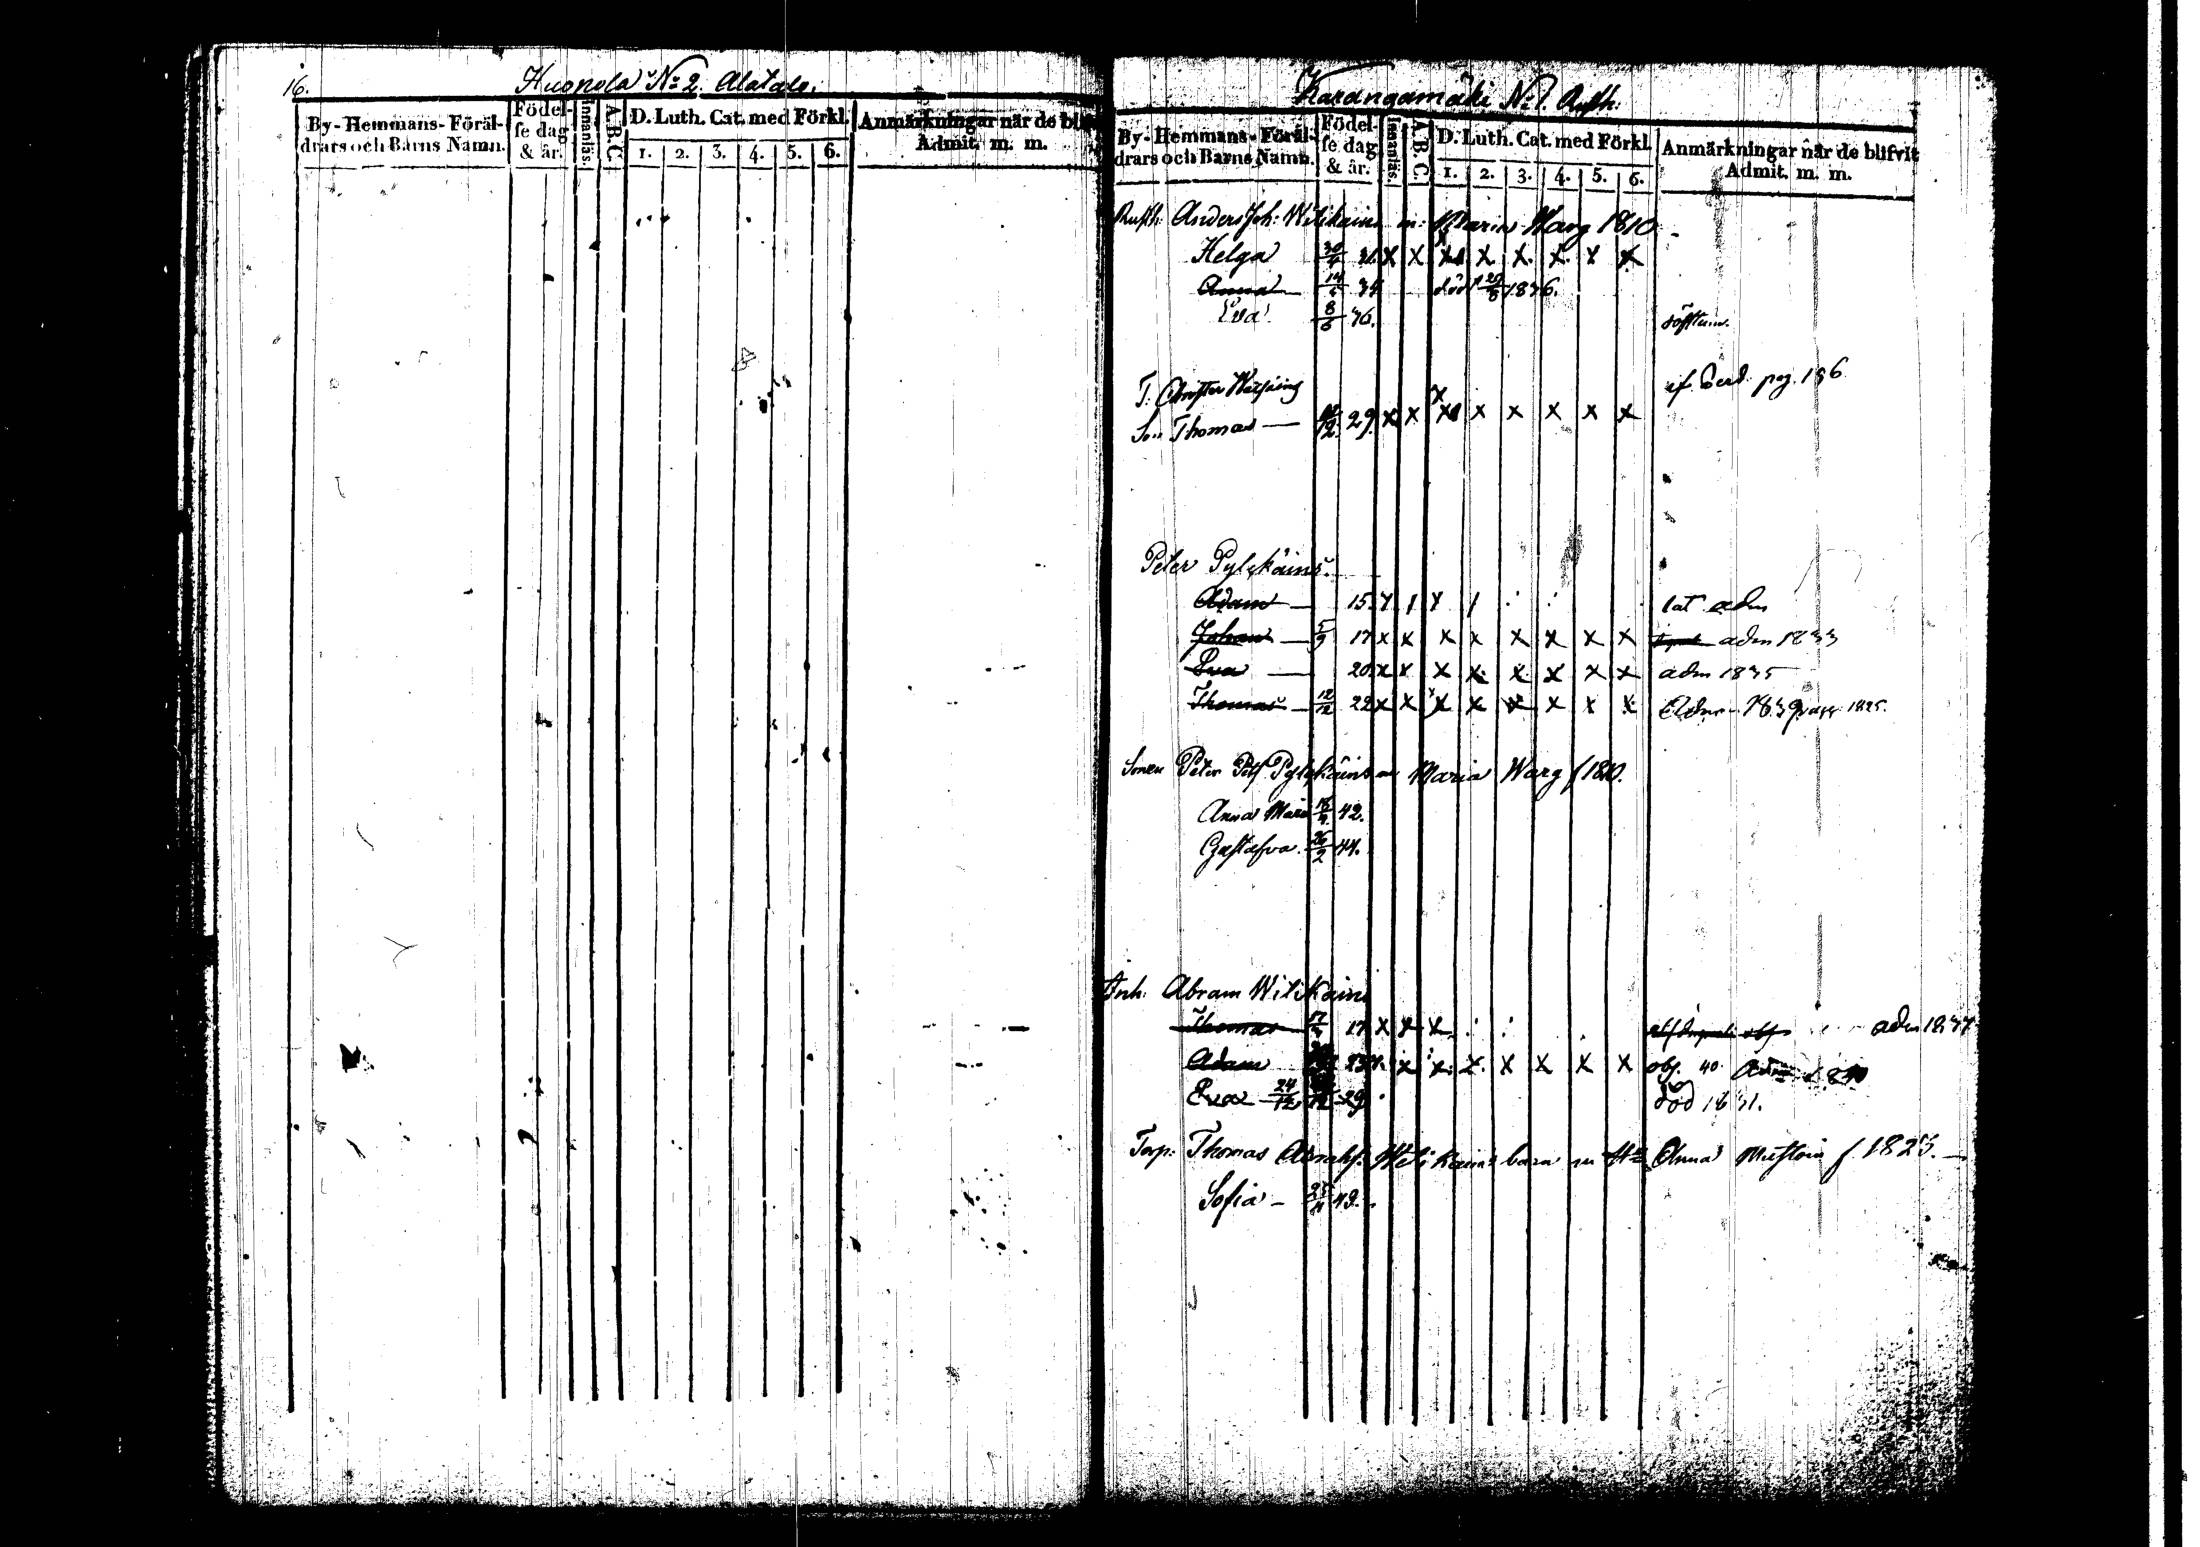 16.
Huopola No 2. Alatalo.
By- Hemmans- Föräl-
drars och Barns Namn.
Födel-
se dag
& år.
Innanläs.
A. B. C.
D. Luth. Cat. med Förkl.
1. 2. 3. 4. 5. 6.
Anmärkningar när de
Admit. m. m.
Karangamäki No 1. Rusth:
By- Hemmans- Föräl-
drars och Barns Namn.
Födel-
se dag
& år.
Innanläs.
A. B. C.
D. Luth. Cat. med Förkl.
1. 2. 3. 4. 5. 6.
Anmärkningar när de blifvit
Admit. m. m.
Rusth: Anders Joh: Wilikains m: Maria Warg 1810
Helga x x x x x x x
Anna 14 död 1836.
Eva 8/6 36.
T:
Son Thomas 29. x x x x x x x x
pag. 196
Peter Pylykäins.
Adam 15.
Johan 5/9 17 x x x x x x x x adm 1833
Eva 20. x x x x x x x x adm 1835
Thomas 12/12 22 x x x x x x x x Adm 1839
Peter Pylykäins m Maria Warg f 1810.
Anna Maria 42.
Gustafva 26/2 44.
Inh: Abram Wilikains
Thomas 17 x x x adm 1837
Adam x x x x x x obs. 40.
Eva 24/12 29 död 1831.
Torp: Thomas Abrahs. Wilikains barn m H:n Anna f 1823.
Sofia 49.